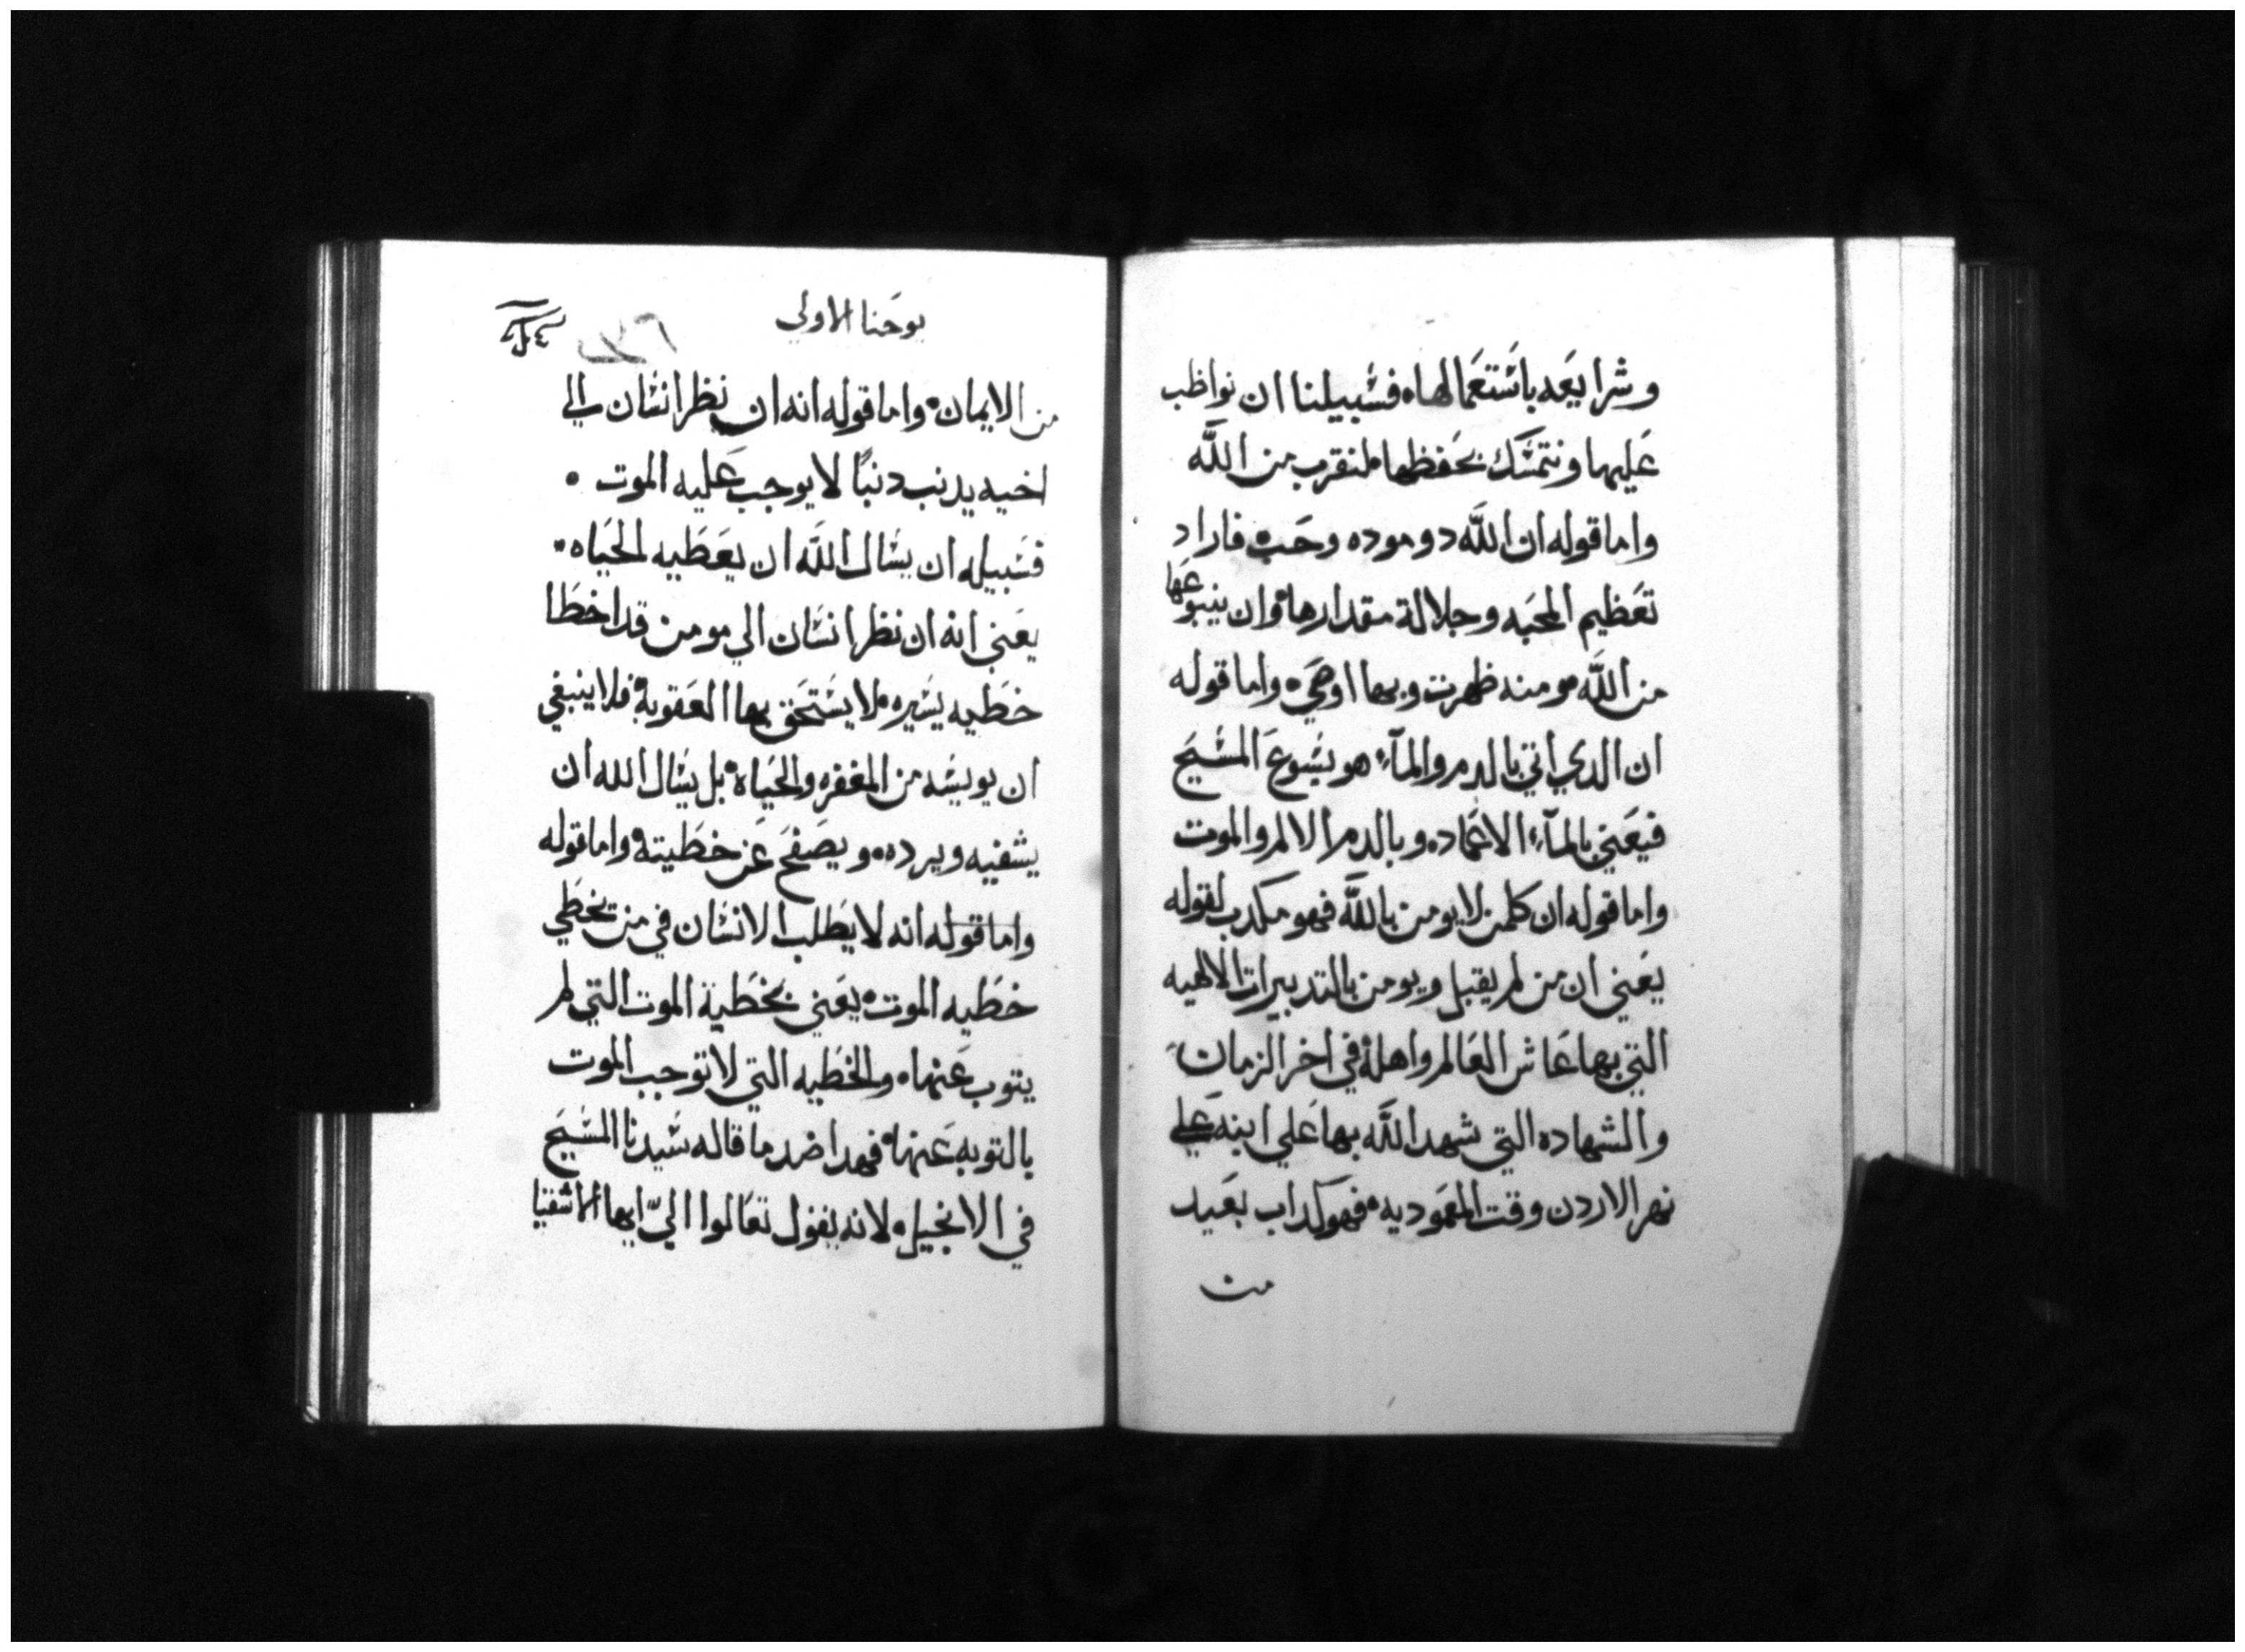 وشرايعه باستعمالها، فسبيلنا ان نواظب
عليها ونتمسك بحفظها لنقرب من الله
واما قوله ان الله دو موده وحب، فاراد
تعظيم المحبه وجلالة مقدارها، وان ينبوعها
من الله، ومنه ظهرت وبها اوصي، واما قوله
ان الدي اتي بالدم والمآء، هو يسوع المسيح
فيعني بالمآء، الاعماده، وبالدم الالم والموت
واما قوله ان كلمن لا يومن بالله فهو مكدب لقوله
يعني ان من لم يقبل ويومن بالتدبيرات الالهيه
التي بها عاش العالم واهله في اخر الزمان
والشهاده التي شهد الله بها علي ابنه علي
نهر الاردن وقت المعموديه، فهو كداب بعيد
من
يوحنا الاولي
من الايمان، واما قوله انه ان نظر انسان الي
اخيه يدنب دنبًا لا يوجب عليه الموت،
فسبيله ان يسال الله ان يعطيه الحياه،
يعني انه ان نظر انسان الي مومن قد اخطا
خطيه يسيره، لا يستحق بها العقوبه، فلا ينبغي
ان يويسه من المغفره والحياه، بل يسال الله ان
يشفيه ويرده، ويصفح عن خطيته، واما قوله
واما قوله انه لا يطلب الانسان في من يخطي
خطيه الموت، يعني بخطية الموت التي لم
يتوب عنها، والخطيه التي لا توجب الموت
بالتوبه عنها، فهدا ضد ما قاله سيدنا المسيح
في الانجيل، لانه يقول تعالوا اليّ ايها الاشقيا